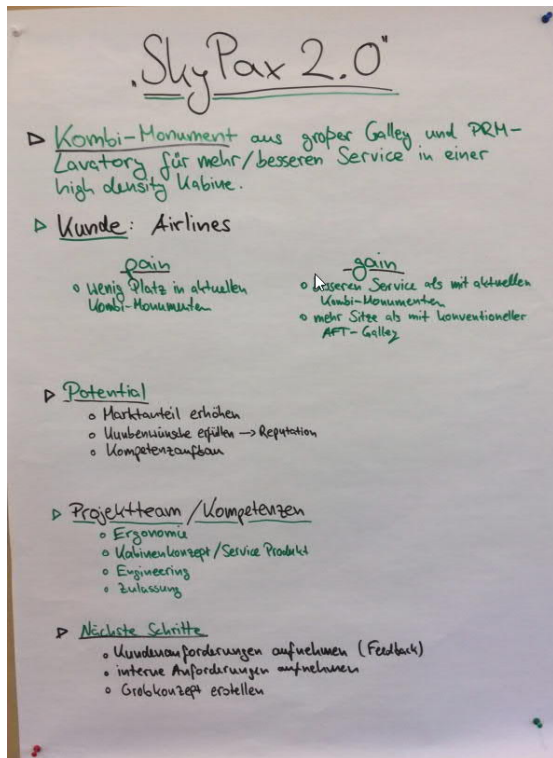 „SkyPax 2.0"
▷ Kombi-Monument aus großer Galley und PRM-
Lavatory für mehr/besseren Service in einer
high density Kabine.
▷ Kunde: Airlines
pain
o wenig Platz in aktuellen
Kombi-Monumenten
gain
o besseren Service als mit aktuellen
Kombi-Monumenten
o mehr Sitze als mit konventioneller
AFT-Galley
▷ Potential
o Marktanteil erhöhen
o Kundenwünsche erfüllen → Reputation
o Kompetenzaufbau
▷ Projektteam / Kompetenzen
o Ergonomie
o Kabinenkonzept / Service Produkt
o Engineering
o Zulassung
▷ Nächste Schritte
• Kundenanforderungen aufnehmen (Feedback)
• interne Anforderungen aufnehmen
o Grobkonzept erstellen